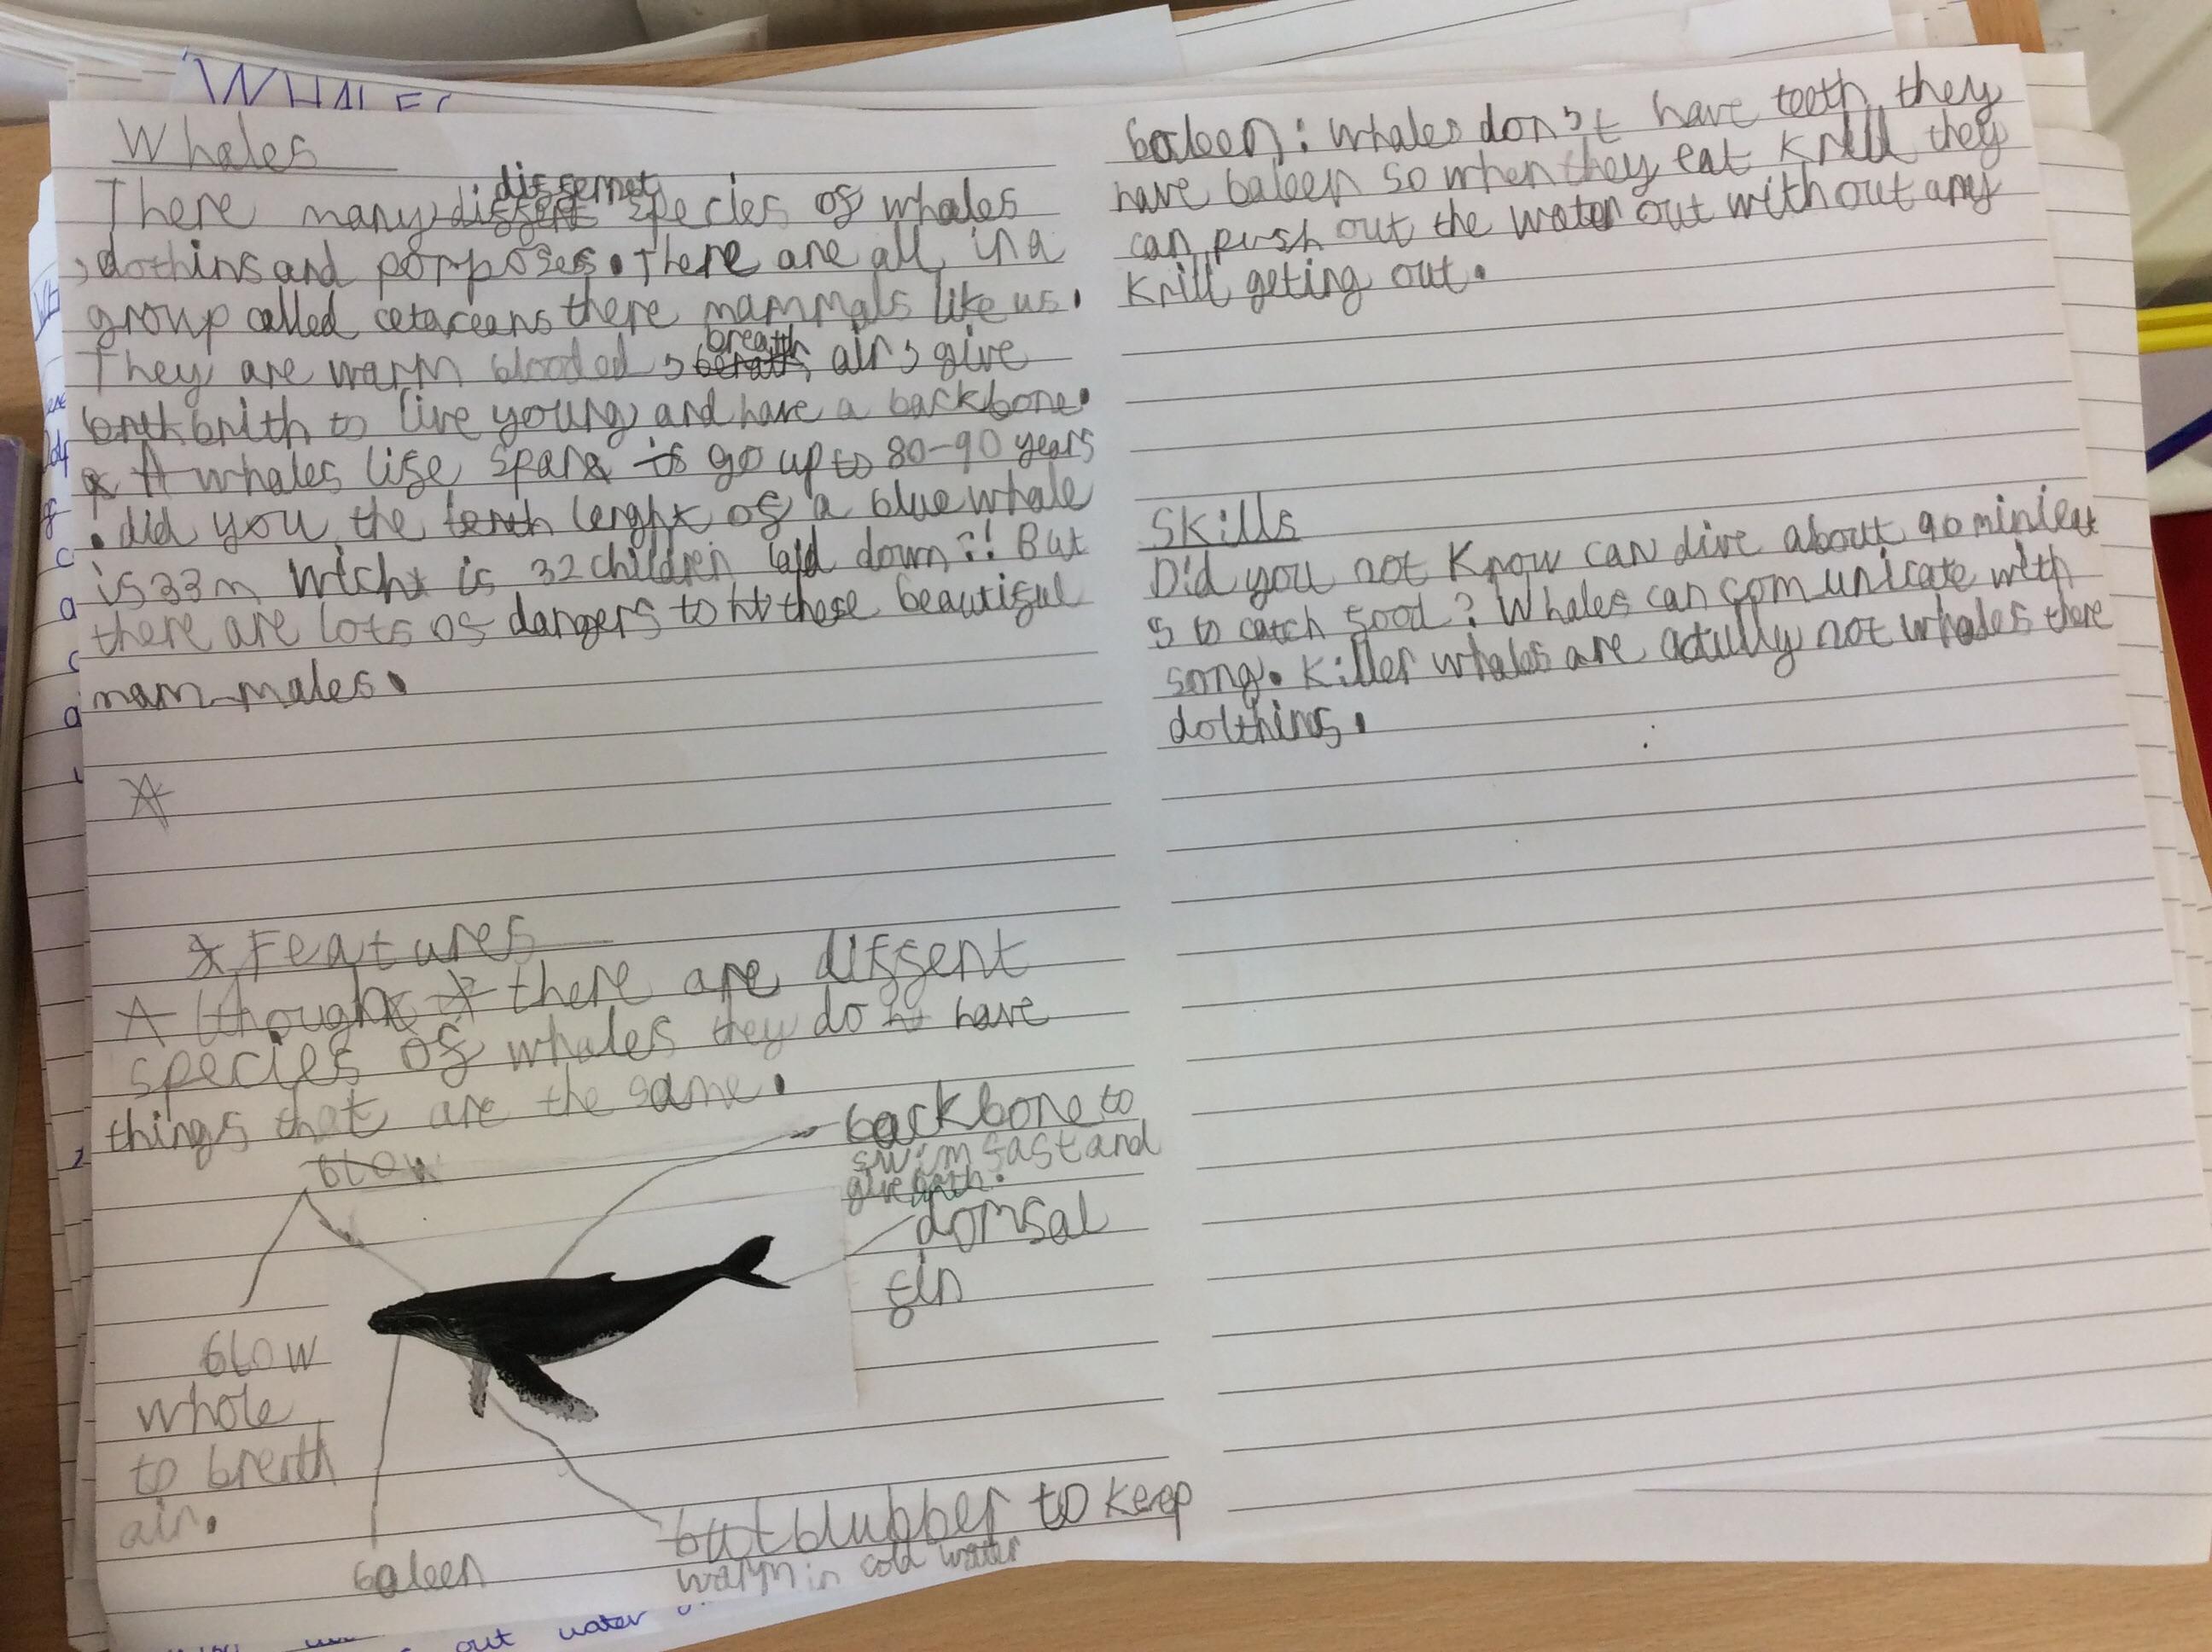 WHALES
Whales
There many differnet species of whales
, dothins and porposes. There are all in a
group called cetaceans there mammals like us.
They are warm blooded, breath air, give
brith to live young and have a backbone.
A whales life span is go up to 80-90 years
. did you the lenght of a blue whale
is 33m wich is 32 children laid down?! But
there are lots of dangers to these beautiful
mam-males.
Features
Althought there are diffent
species of whales they do have
things that are the same.
blow
backbone to
swim fast and
give birth.
dorsal
fin
blow
whole
to breath
air.
baleen
blubber to keep
warm in cold water
baleen: whales don't have teeth they
have baleen so when they eat krill they
can push out the water out without any
krill geting out.
Skills
Did you not know can dive about 90 minieat
s to catch food? Whales can comunicate with
song. Killer whales are actully not whales there
dolthins.
out water